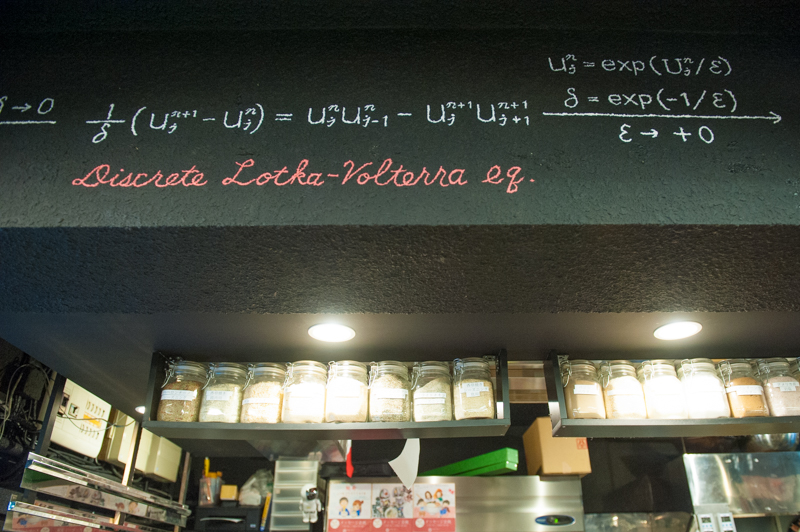 δ → 0
1/δ (u_j^{n+1} - u_j^n) = u_j^n u_{j-1}^n - u_j^{n+1} u_{j+1}^{n+1}
u_j^n = exp(U_j^n/ε)
δ = exp(-1/ε)
ε → +0
Discrete Lotka-Volterra eq.